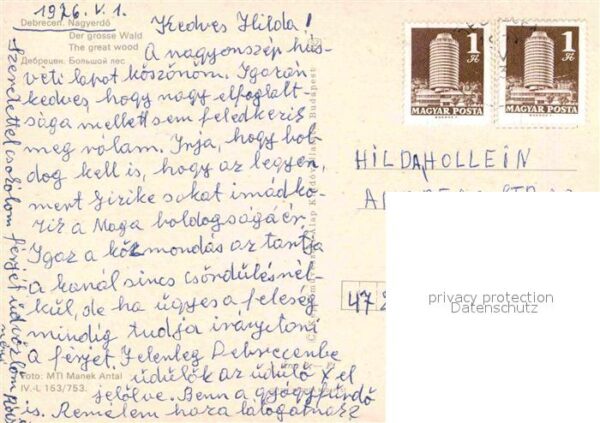 1976.V.1.
Debrecen. Nagyerdő
Der grosse Wald
The great wood
Дебрецен. Большой лес
Kedves Hilda!
A nagyonszép hús-
véti lapot köszönöm. Igazán
kedves, hogy nagy elfoglalt-
sága mellett sem feledkezik
meg rólam. Irja, hogy bol-
dog kell is, hogy az legyen,
mert Zizike sokat imádko-
zik a Maga boldogságáér.
Igaz a közmondás az tartja
a kanál sincs csördülésnél-
kül, de ha ügyes a feleség
mindig tudja irányitani
a férjét. Jelenleg Debrecenbe
üdülök az üdülő x el
jelölve. Benn a gyógyfürdő
is. Remélem haza látogatnak?
Szeretettel csókolom férjét üdvözlöm
néni
Foto: MTI Manek Antal
IV.-L 153/753.
Képzőművészeti Alap Kiadóvállalata Budapest
1 Ft
MAGYAR POSTA
1 Ft
MAGYAR POSTA
HILDA HOLLEIN
47
privacy protection
Datenschutz